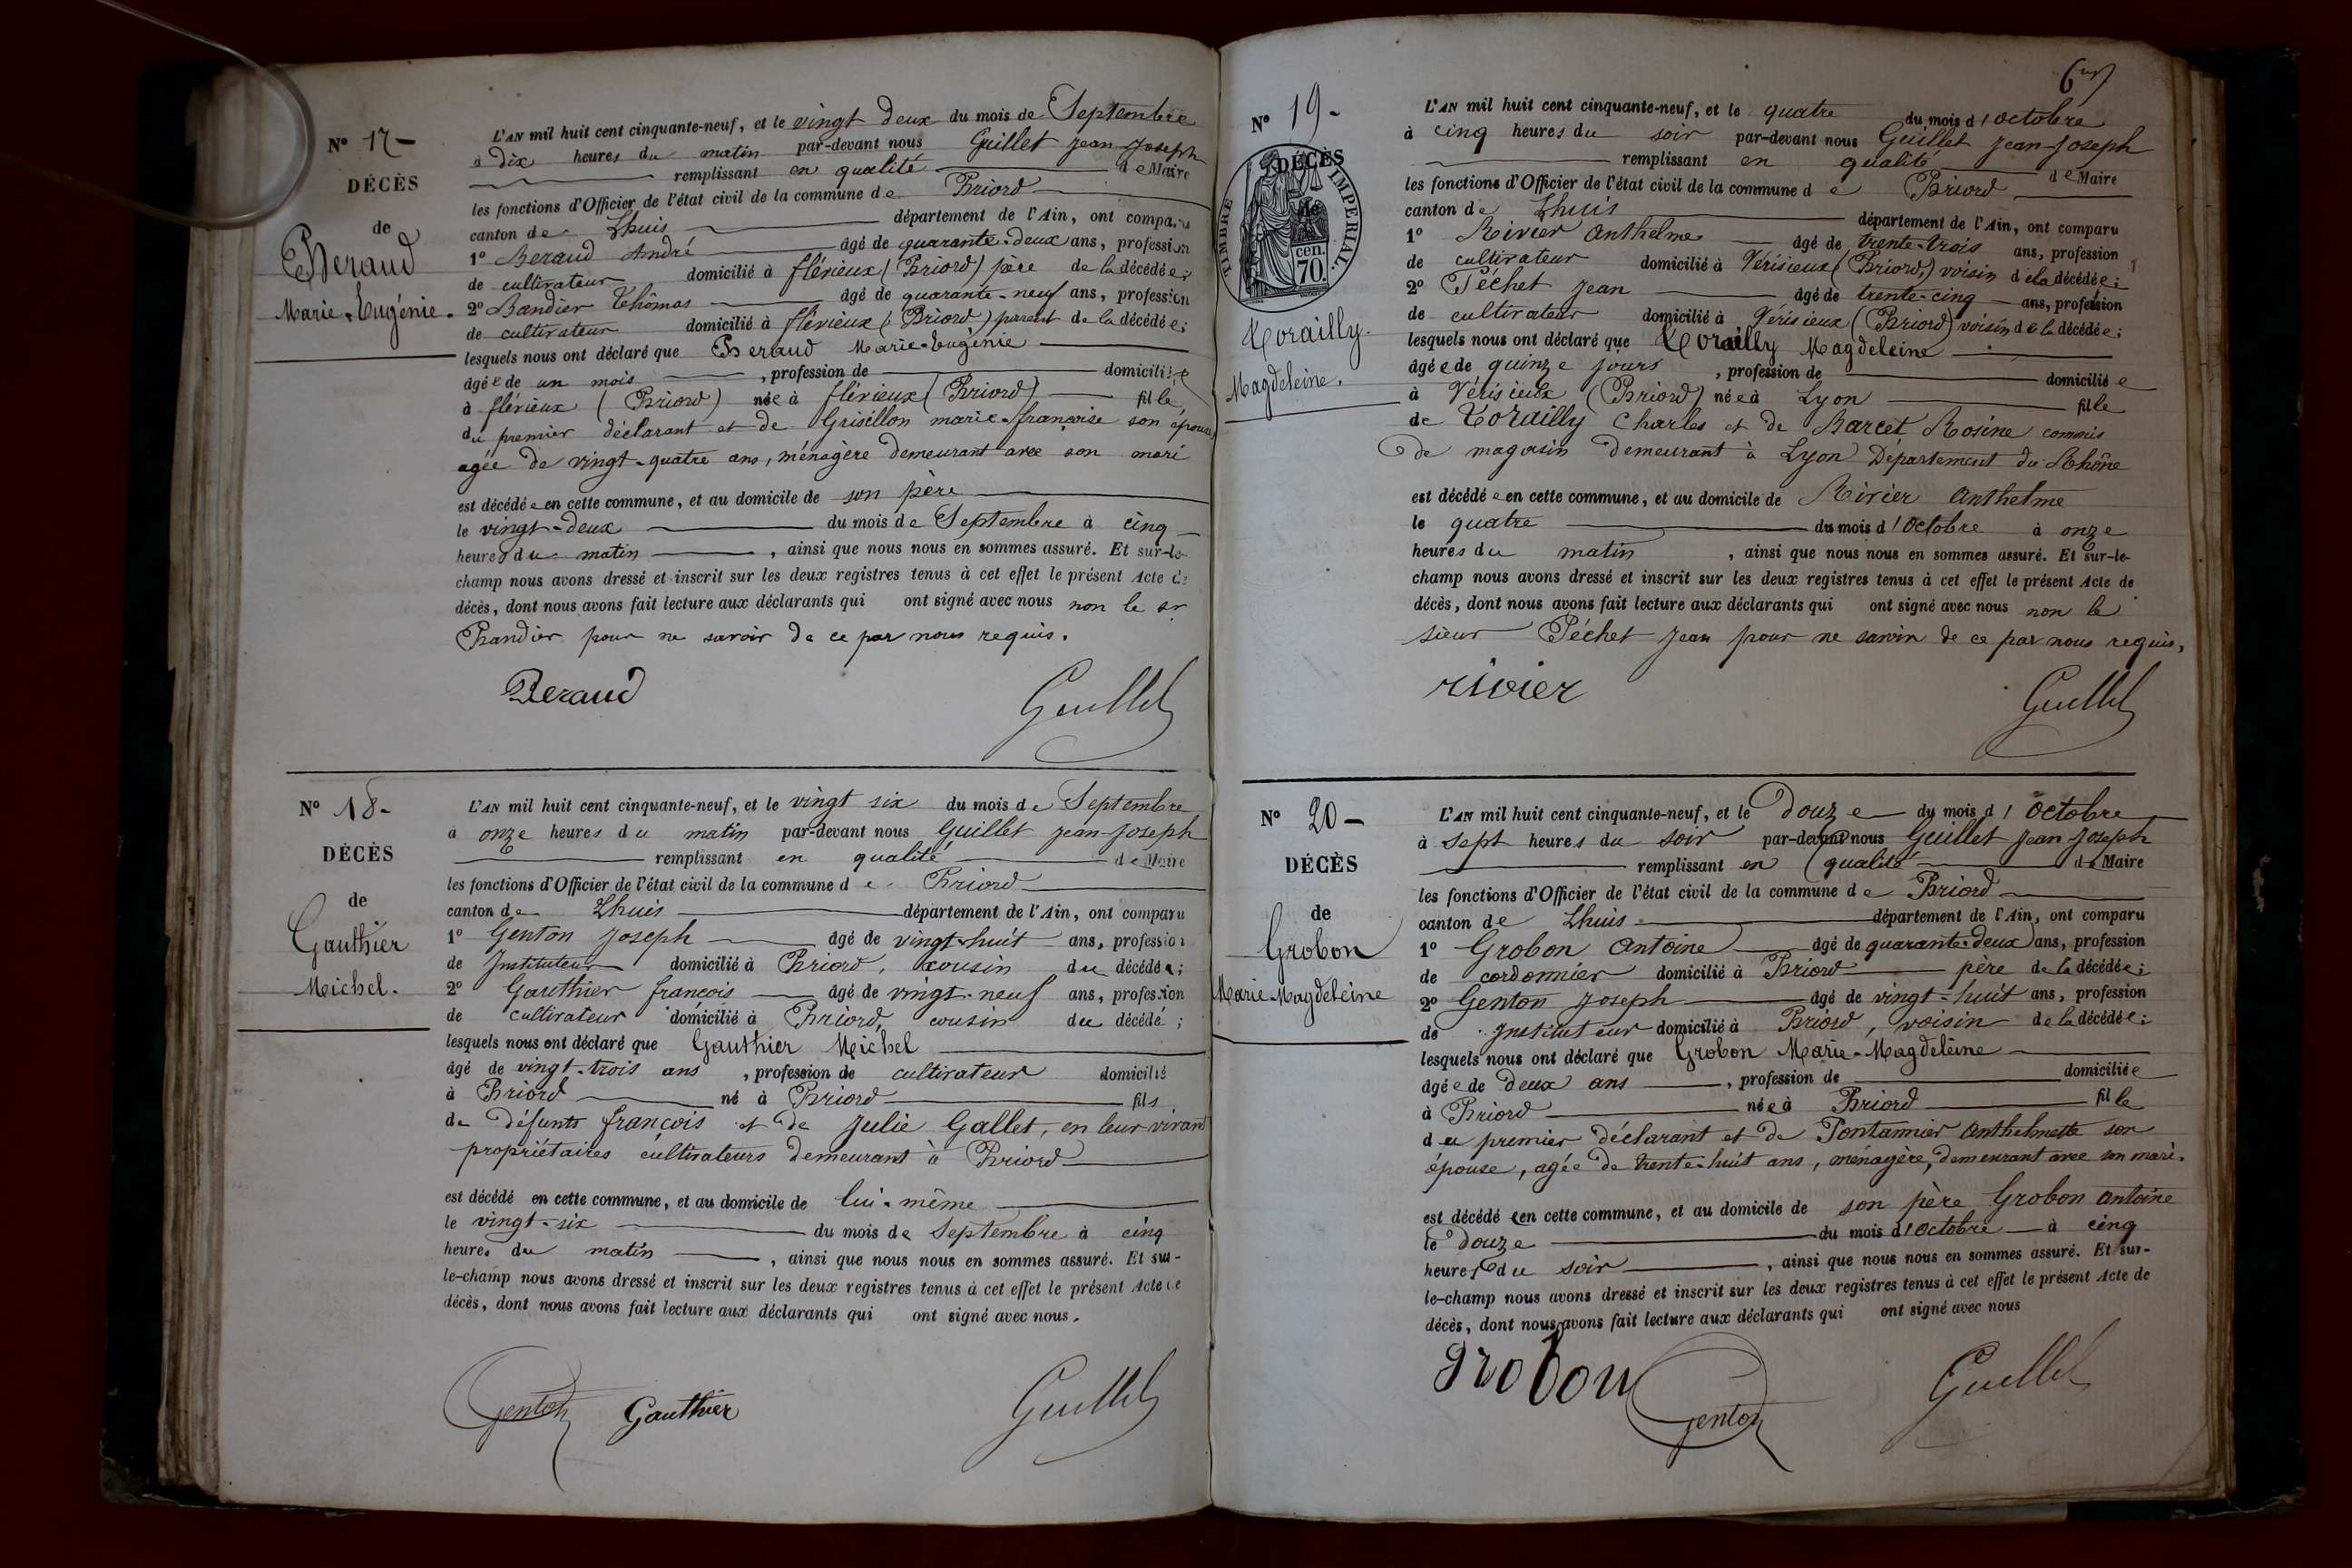 N° 17 -
DÉCÈS
de
Beraud
Marie-Eugénie.
L'AN mil huit cent cinquante-neuf, et le vingt deux du mois de Septembre
à dix heures du matin par-devant nous Guillet Jean-Joseph
remplissant en qualité de Maire
les fonctions d'Officier de l'état civil de la commune de Briord
canton de Lhuis département de l'Ain, ont comparu
1° Beraud André âgé de quarante-deux ans, profession
de cultivateur domicilié à flérieux (Briord) père de la décédée;
2° Bandier Thômas âgé de quarante-neuf ans, profession
de cultivateur domicilié à flérieux (Briord) parent de la décédée;
lesquels nous ont déclaré que Beraud Marie-Eugénie
âgée de un mois, profession de domiciliée
à flérieux (Briord) née à flérieux (Briord) fille
du premier déclarant et de Grisillon marie-françoise son épouse
agée de vingt-quatre ans, ménagère demeurant avec son mari
est décédée en cette commune, et au domicile de son père
le vingt-deux du mois de Septembre à cinq
heures du matin, ainsi que nous nous en sommes assuré. Et sur-le-
champ nous avons dressé et inscrit sur les deux registres tenus à cet effet le présent Acte de
décès, dont nous avons fait lecture aux déclarants qui ont signé avec nous non le sr
Bandier pour ne savoir de ce par nous requis.
Beraud Guillet
N° 18 -
DÉCÈS
de
Gauthier
Michel.
L'AN mil huit cent cinquante-neuf, et le vingt six du mois de Septembre
à onze heures du matin par-devant nous Guillet Jean-Joseph
remplissant en qualité de Maire
les fonctions d'Officier de l'état civil de la commune de Briord
canton de Lhuis département de l'Ain, ont comparu
1° Genton Joseph âgé de vingt-huit ans, profession
de Instituteur domicilié à Briord, cousin du décédé;
2° Gauthier françois âgé de vingt-neuf ans, profession
de cultivateur domicilié à Briord, cousin du décédé;
lesquels nous ont déclaré que Gauthier Michel
âgé de vingt-trois ans, profession de cultivateur domicilié
à Briord né à Briord fils
de défunts françois et de Julie Gallet, en leur vivant
propriétaires cultivateurs demeurant à Briord
est décédé en cette commune, et au domicile de lui-même
le vingt-six du mois de Septembre à cinq
heures du matin, ainsi que nous nous en sommes assuré. Et sur-
le-champ nous avons dressé et inscrit sur les deux registres tenus à cet effet le présent Acte de
décès, dont nous avons fait lecture aux déclarants qui ont signé avec nous.
Genton Gauthier Guillet
N° 19 -
DÉCÈS
de
TIMBRE IMPÉRIAL.
cen.
70.
Torailly
Magdeleine.
L'AN mil huit cent cinquante-neuf, et le quatre du mois d'octobre
à cinq heures du soir par-devant nous Guillet Jean-Joseph
remplissant en qualité de Maire
les fonctions d'Officier de l'état civil de la commune de Briord
canton de Lhuis département de l'Ain, ont comparu
1° Rivier Anthelme âgé de trente-trois ans, profession
de cultivateur domicilié à Vérisieux (Briord,) voisin de la décédée;
2° Péchet Jean âgé de trente-cinq ans, profession
de cultivateur domicilié à Vérisieux (Briord) voisin de la décédée;
lesquels nous ont déclaré que Torailly Magdeleine
âgée de quinze jours, profession de domiciliée
à Vérisieux (Briord) née à Lyon fille
de Torailly Charles et de Barcet Rosine commis
de magasin demeurant à Lyon Département du Rhône
est décédée en cette commune, et au domicile de Rivier Anthelme
le quatre du mois d'octobre à onze
heures du matin, ainsi que nous nous en sommes assuré. Et sur-le-
champ nous avons dressé et inscrit sur les deux registres tenus à cet effet le présent Acte de
décès, dont nous avons fait lecture aux déclarants qui ont signé avec nous non le
sieur Péchet Jean pour ne savoir de ce par nous requis,
rivier Guillet
N° 20 -
DÉCÈS
de
Grobon
Marie-Magdeleine
L'AN mil huit cent cinquante-neuf, et le Douze du mois d'octobre
à sept heures du soir par-devant nous Guillet Jean-Joseph
remplissant en qualité de Maire
les fonctions d'Officier de l'état civil de la commune de Briord
canton de Lhuis département de l'Ain, ont comparu
1° Grobon Antoine âgé de quarante-deux ans, profession
de cordonnier domicilié à Briord père de la décédée;
2° Genton Joseph âgé de vingt-huit ans, profession
de Instituteur domicilié à Briord, voisin de la décédée;
lesquels nous ont déclaré que Grobon Marie-Magdeleine
âgée de deux ans, profession de domiciliée
à Briord née à Briord fille
du premier déclarant et de Pontannier Anthelmette son
épouse, agée de trente-huit ans, ménagère, demeurant avec son mari.
est décédée en cette commune, et au domicile de son père Grobon Antoine
le douze du mois d'octobre à cinq
heures du soir, ainsi que nous nous en sommes assuré. Et sur-
le-champ nous avons dressé et inscrit sur les deux registres tenus à cet effet le présent Acte de
décès, dont nous avons fait lecture aux déclarants qui ont signé avec nous
Grobon Genton Guillet